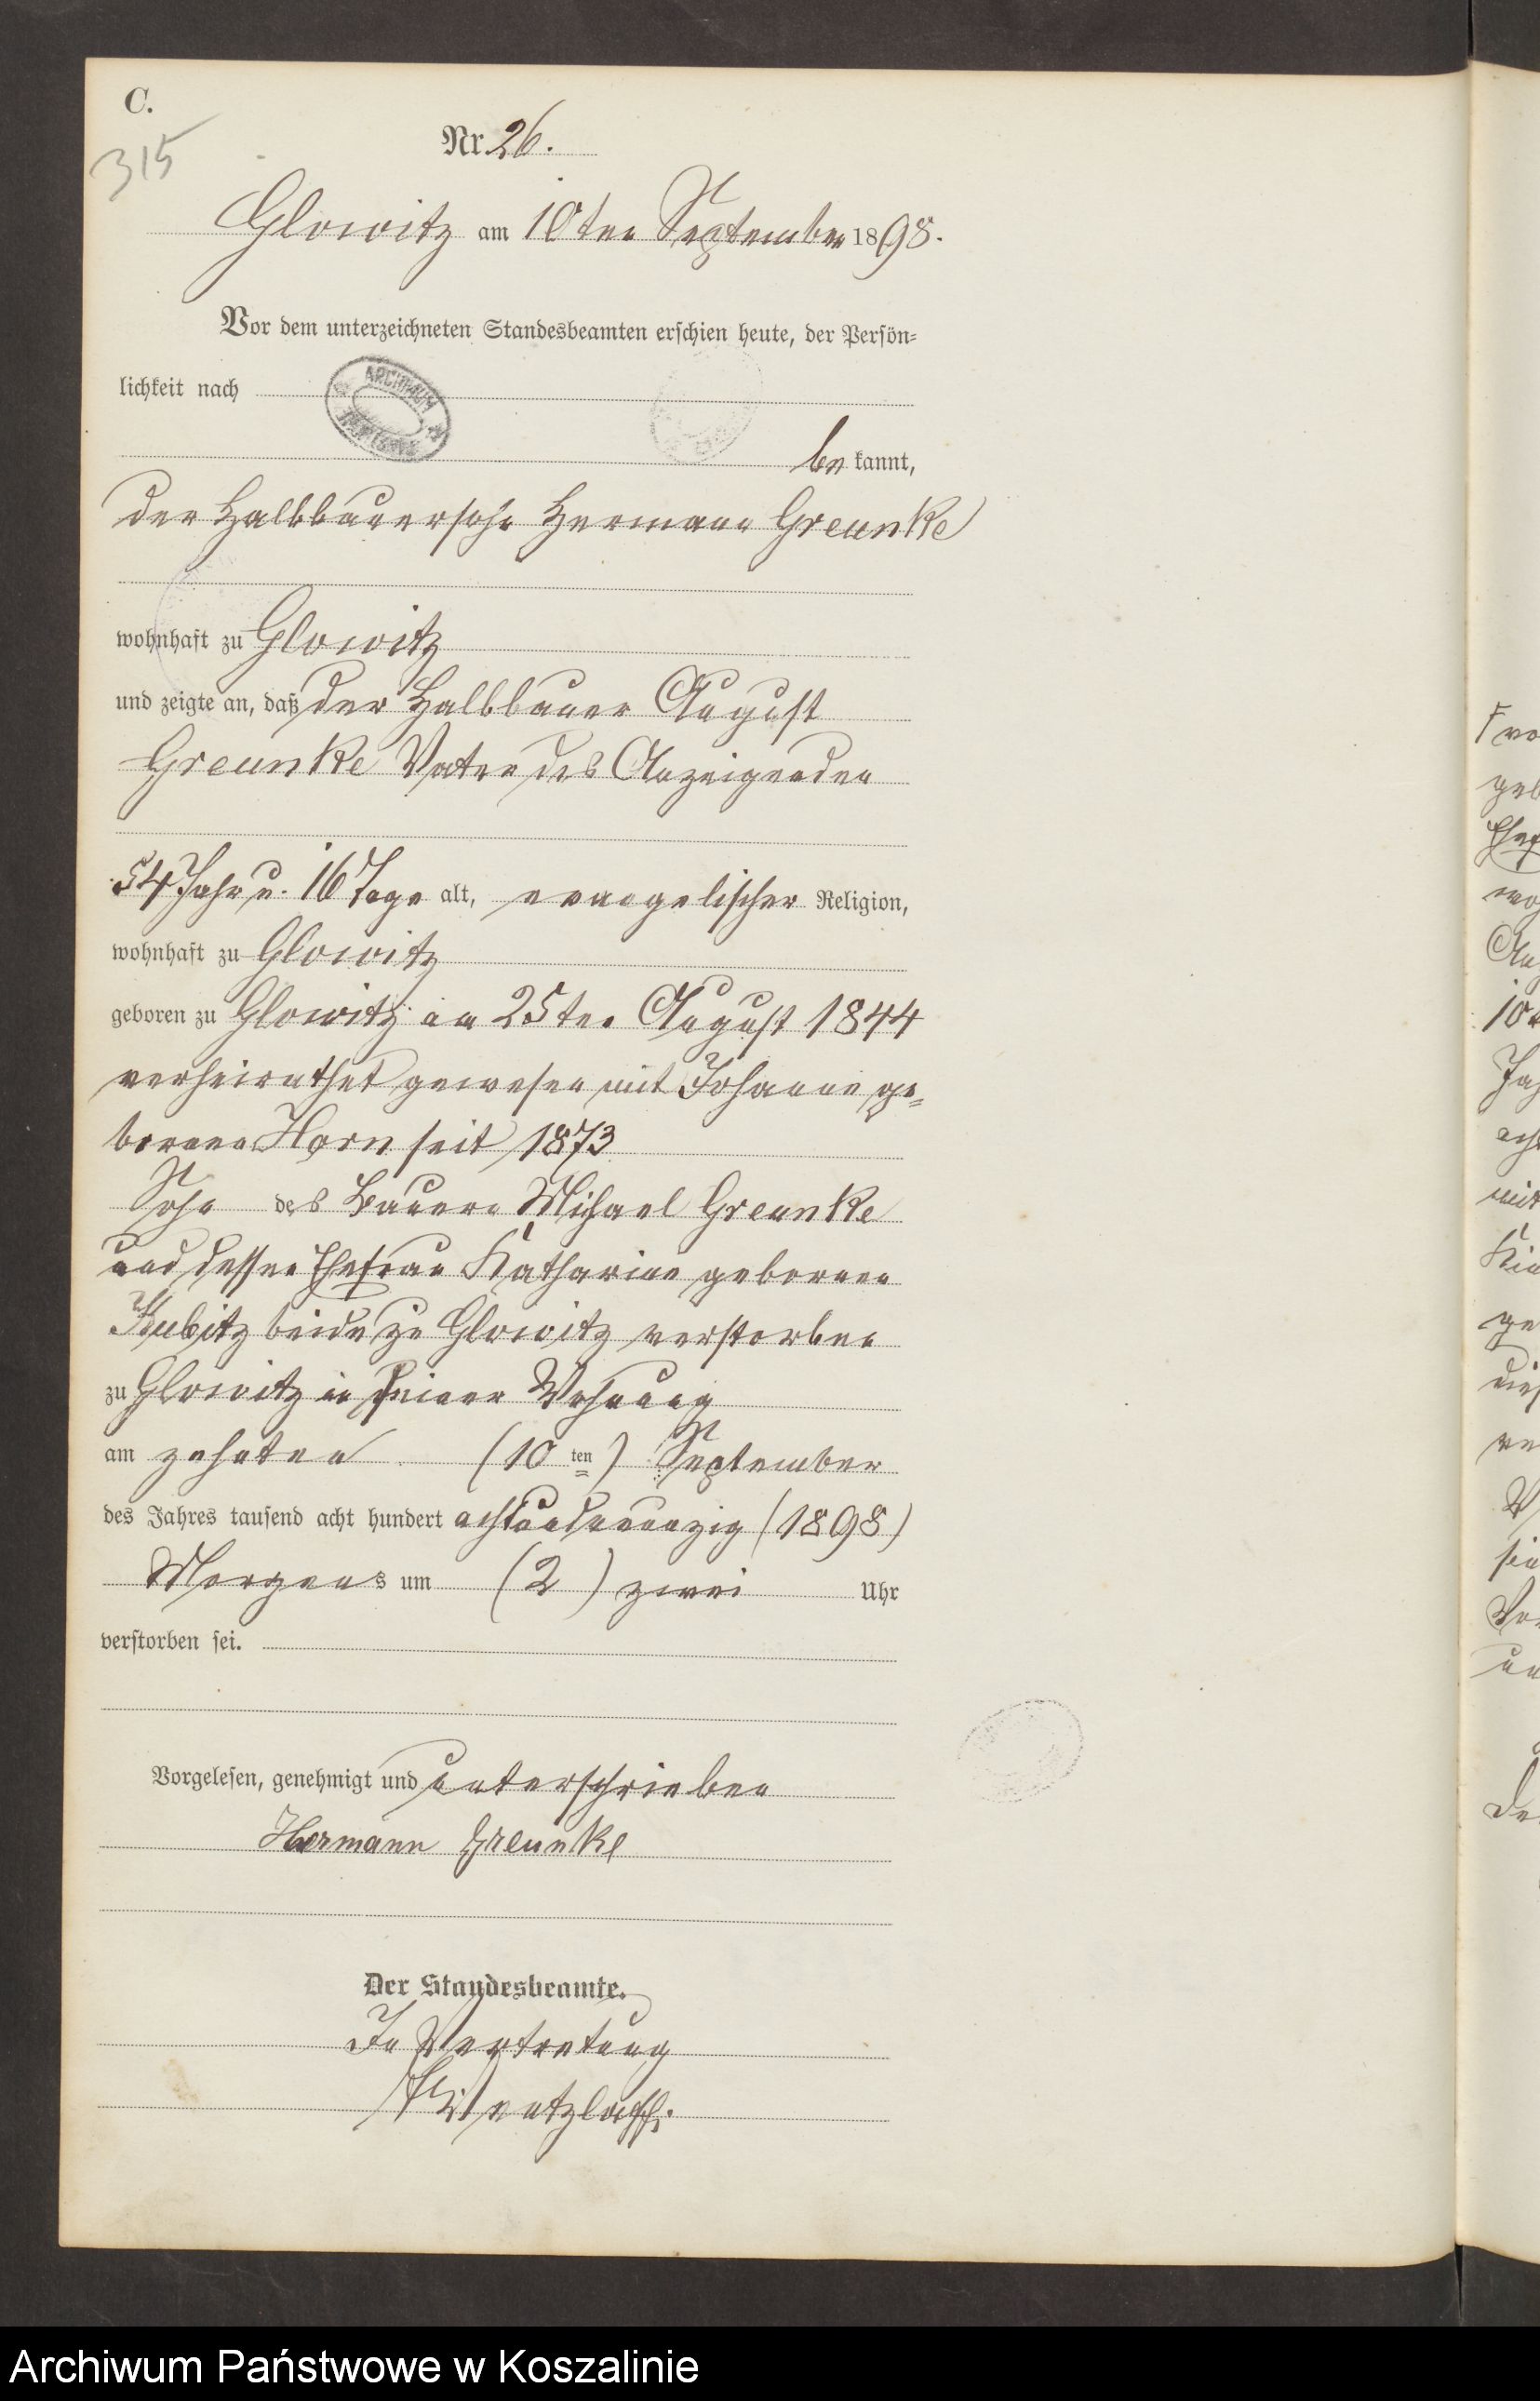 C.
315
Nr 26.
Glowitz am 10ten September 1898.
Vor dem unterzeichneten Standesbeamten erschien heute, der Persön-
lichkeit nach
ARCHIWUM
be kannt,
der Halbbauersohn Hermann Greunke
wohnhaft zu Glowitz
und zeigte an, daß der Halbbauer August
Greunke Vater des Anzeigenden
54 Jahr u. 16 Tage alt, evangelischer Religion,
wohnhaft zu Glowitz
geboren zu Glowitz am 25ten August 1844
verheirathet gewesen mit Johanne ge-
borenen Horn seit 1873
Sohn des Bauern Michael Greunke
und dessen Ehefrau Katharine geborenen
Kubitz beide zu Glowitz verstorben
zu Glowitz in seiner Wohnung
am zehnten (10 ten) September
des Jahres tausend acht hundert achtundneunzig (1898)
Morgens um (2) zwei Uhr
verstorben sei.
Vorgelesen, genehmigt und unterschrieben
Hermann Greunke
Der Standesbeamte.
In Vertretung
Archiwum Państwowe w Koszalinie